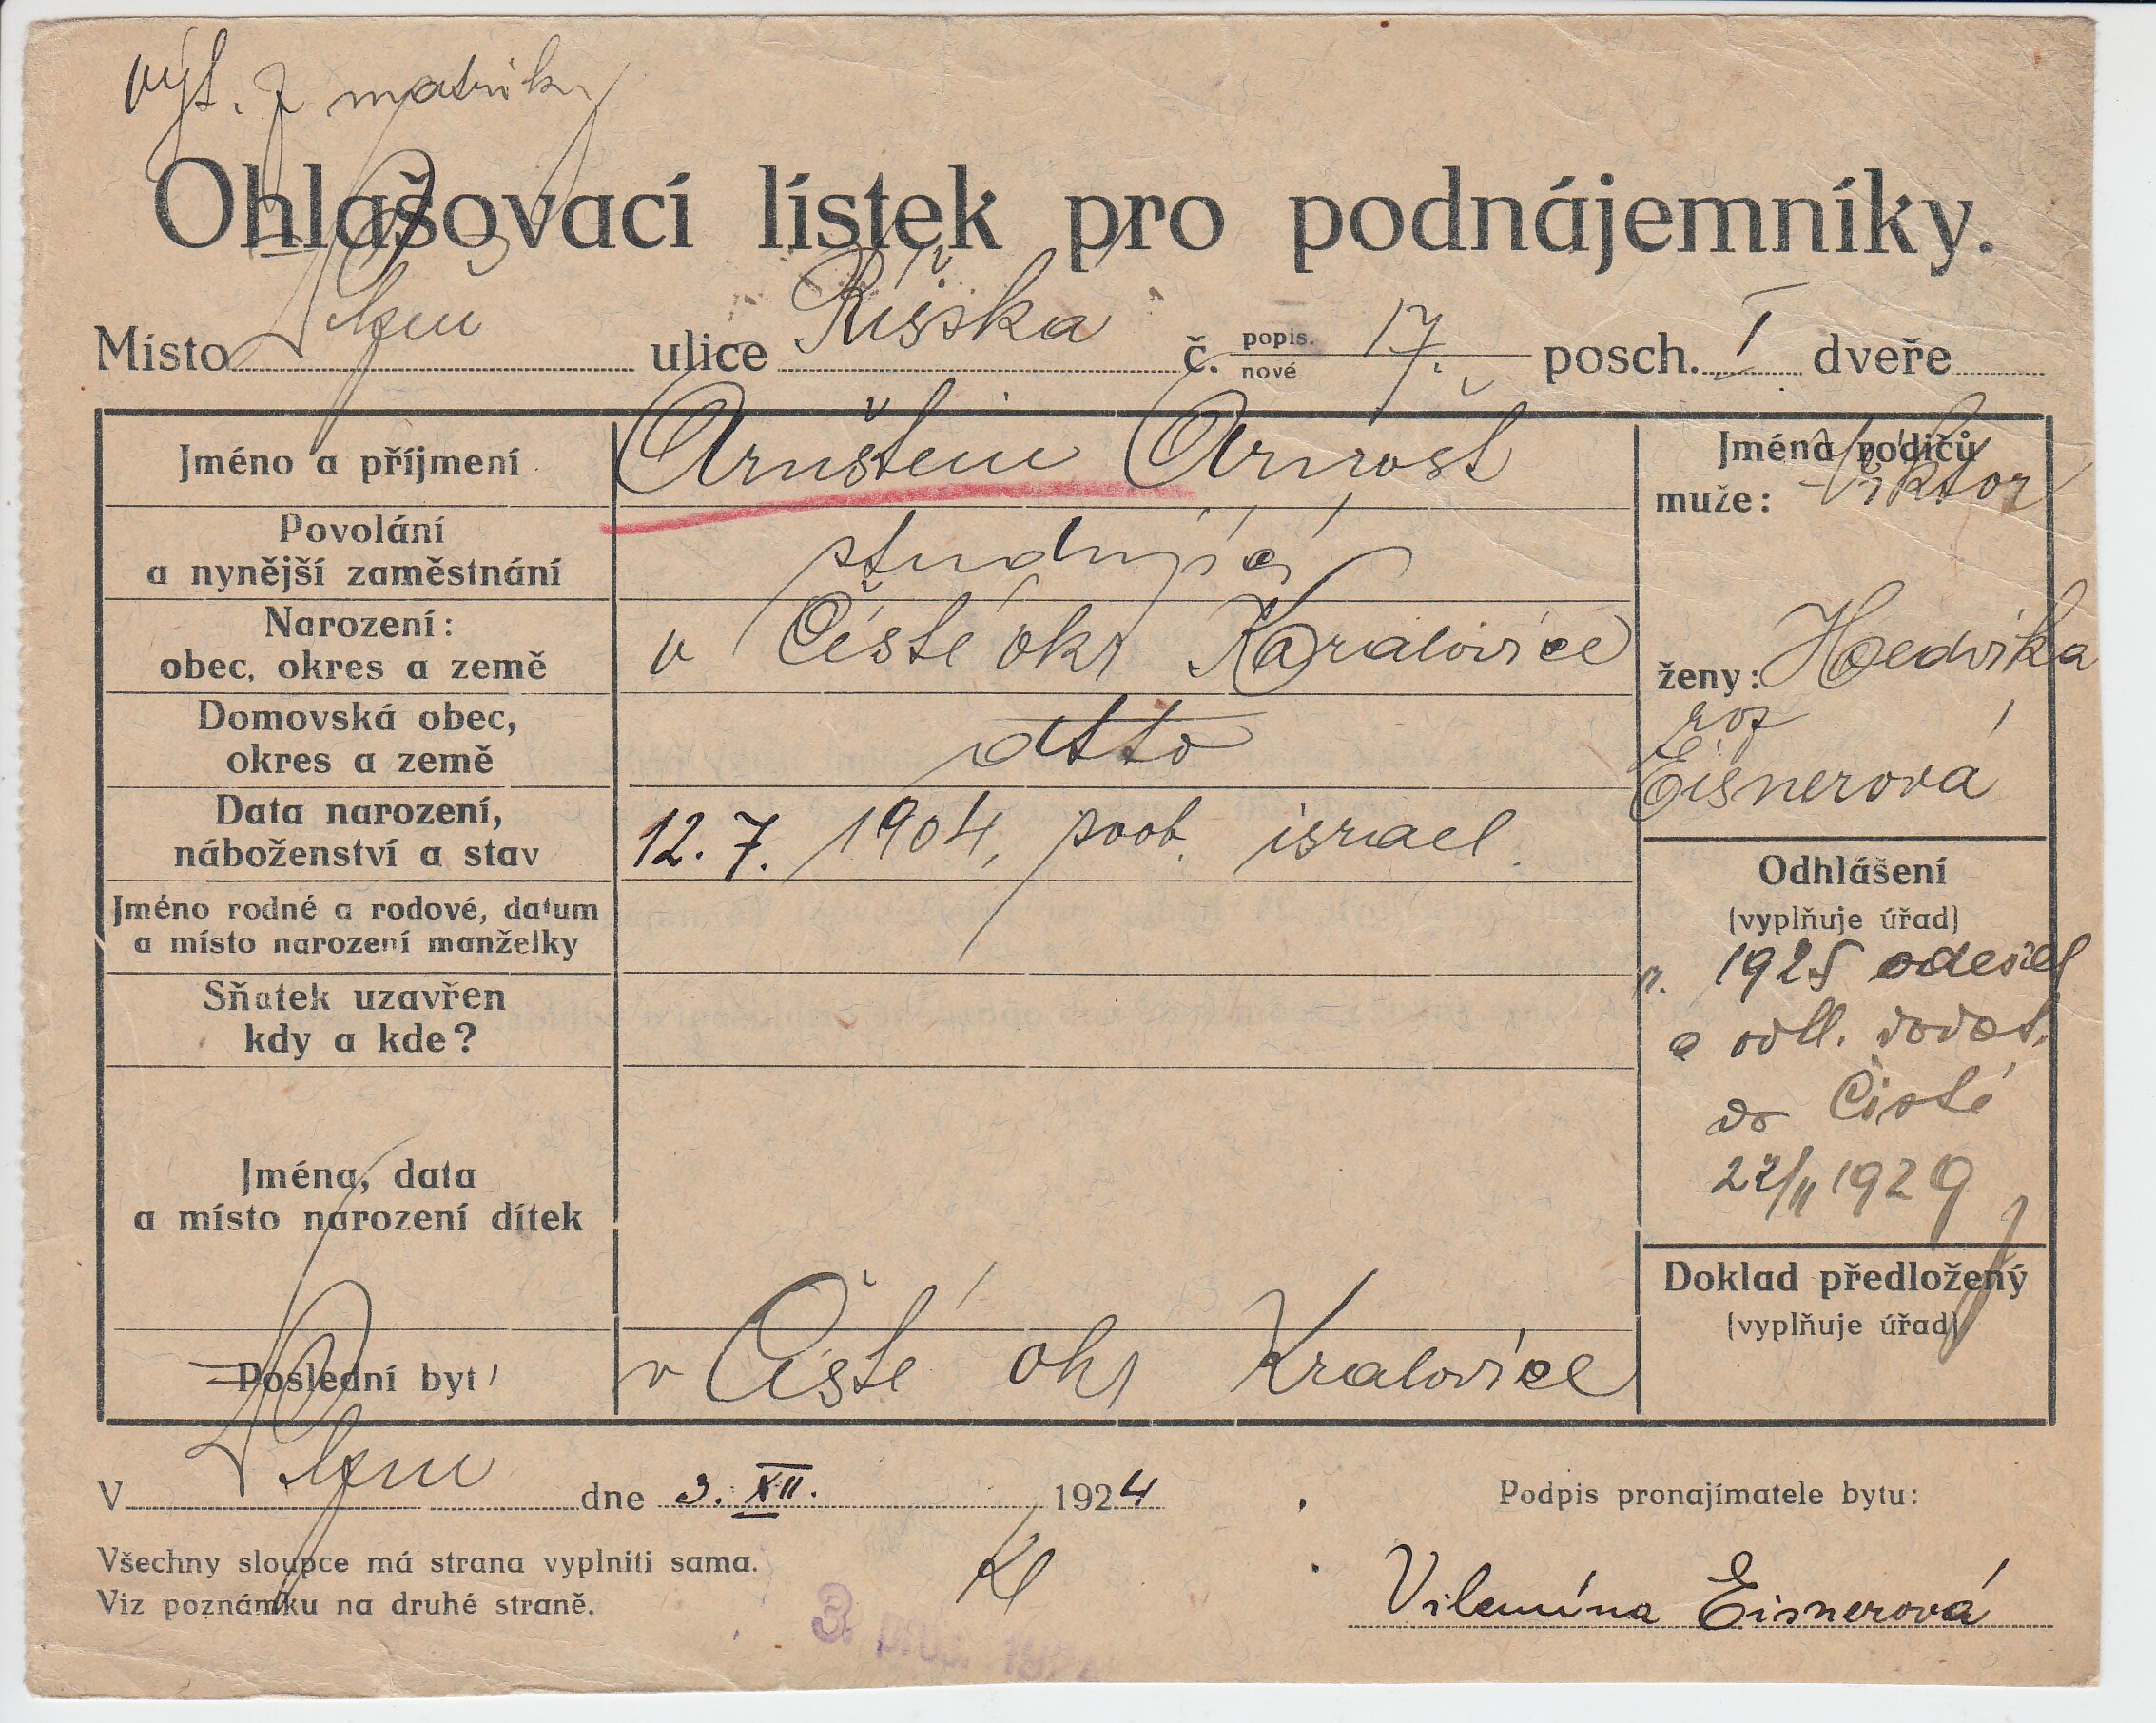 výt. z matriky
Ohlašovací lístek pro podnájemníky.
Místo Plzeň ulice Říšská č. popis. nové 17. posch. I dveře
Jméno a příjmení Arnštein Arnošt
Jména rodičů
muže: Viktor
Povolání
a nynější zaměstnání studující
Narození:
obec, okres a země v Čisté okr Kralovice
ženy: Hedvika
roz
Eisnerová
Domovská obec,
okres a země dtto
Data narození,
náboženství a stav 12. 7. 1904, svob. israel.
Jméno rodné a rodové, datum
a místo narození manželky
Sňatek uzavřen
kdy a kde?
Odhlášení
(vyplňuje úřad)
r. 1925 odešel
a odl. dodat.
do Čisté
22/II 1929
Jména, data
a místo narození dítek
Doklad předložený
(vyplňuje úřad)
Poslední byt v Čisté okr Kralovice
V Plzni dne 3. XII. 1924
Podpis pronajímatele bytu:
Všechny sloupce má strana vyplniti sama.
Viz poznámku na druhé straně.
Vilemína Eisnerová
3. pros. 1924